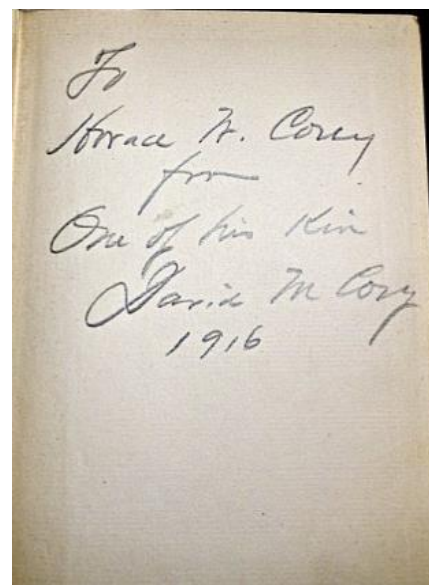 To
Horace W. Corey
from
One of his Kin
David M Cory
1916